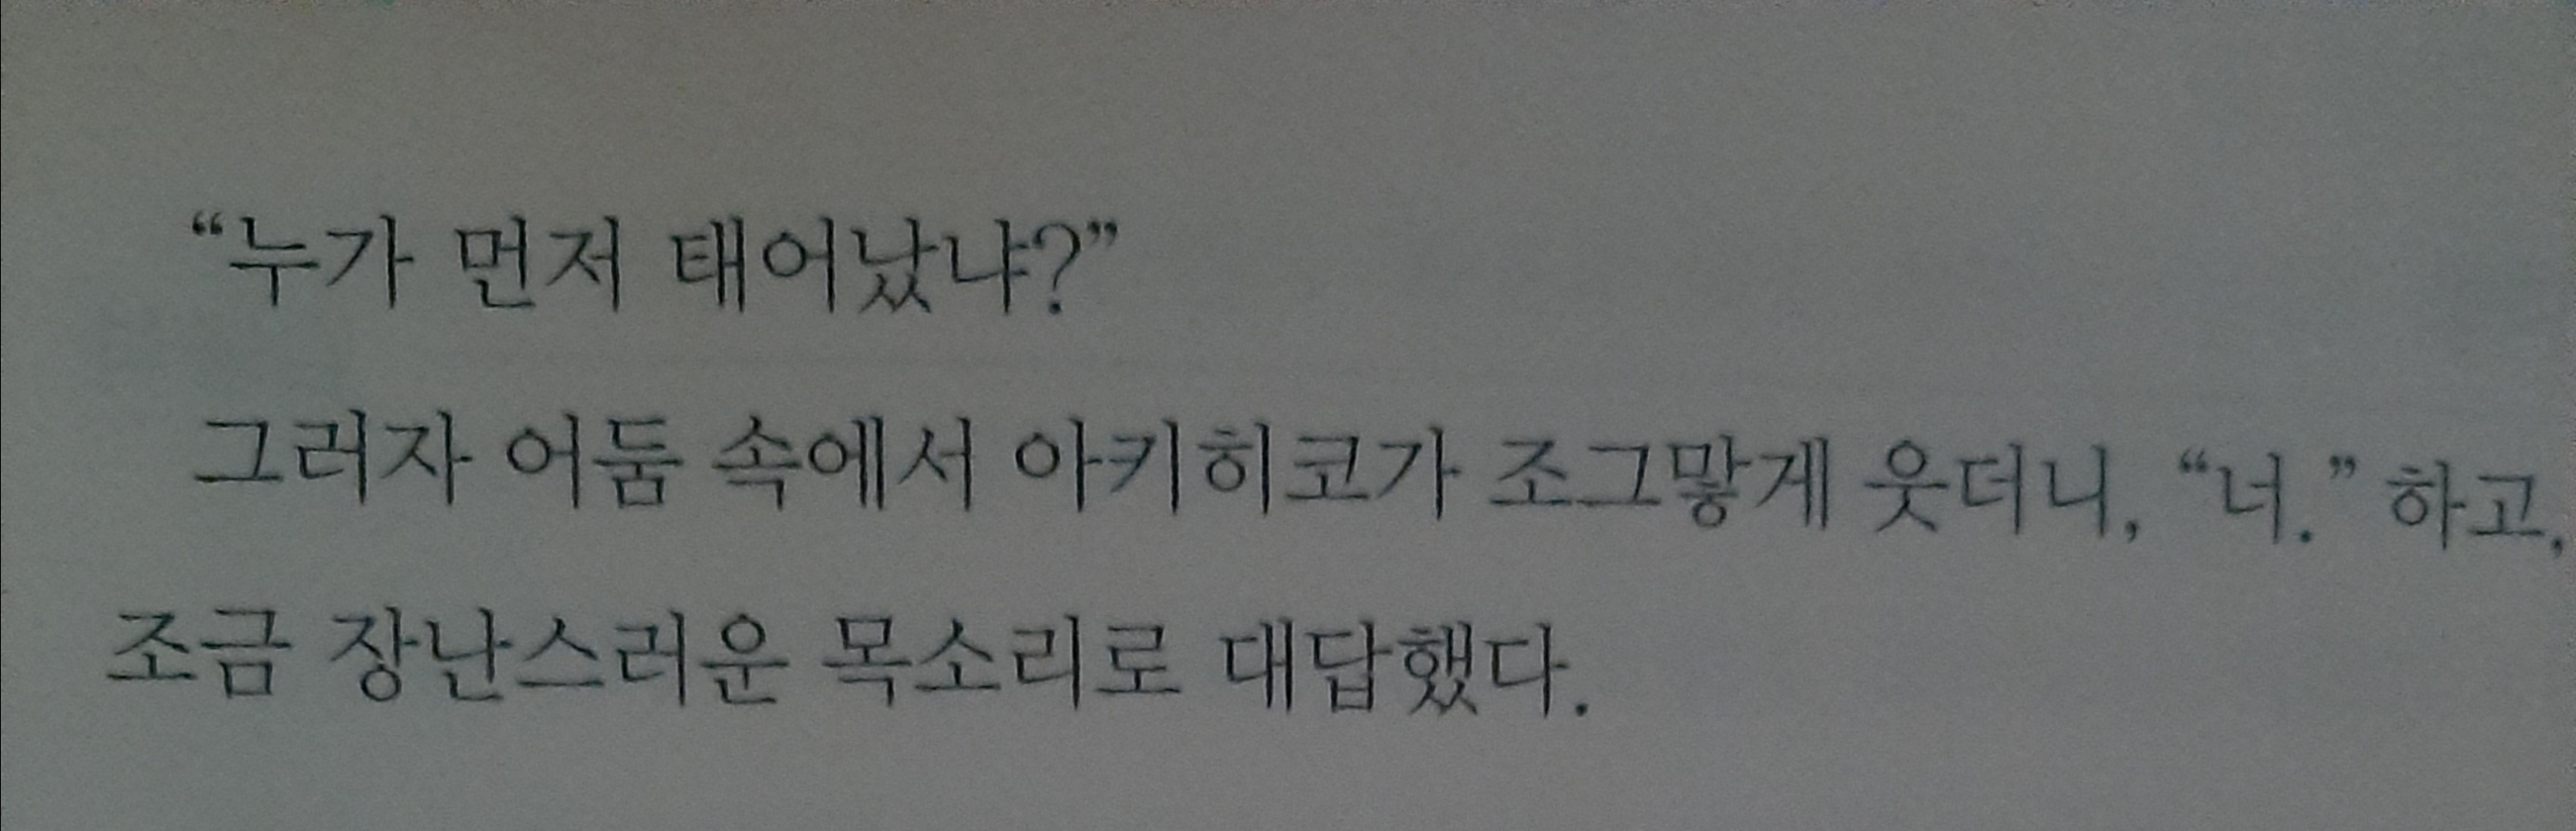 “누가 먼저 태어났냐?”
그러자 어둠 속에서 아키히코가 조그맣게 웃더니, “너.” 하고,
조금 장난스러운 목소리로 대답했다.